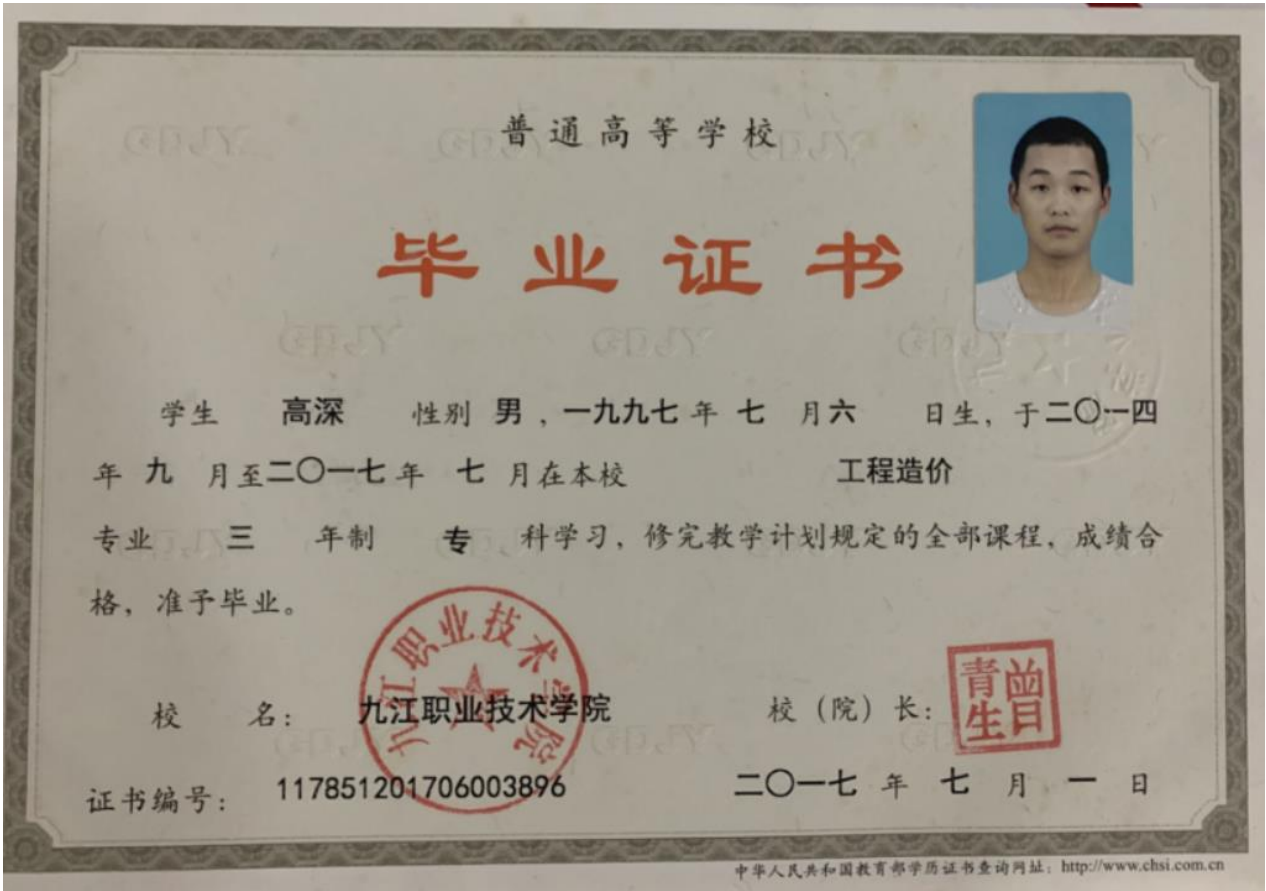 普通高等学校
毕业证书
学生 高深 性别 男，一九九七年 七 月六 日生，于二〇一四
年 九 月至二〇一七年 七 月在本校 工程造价
专业 三 年制 专 科学习，修完教学计划规定的全部课程，成绩合
格，准予毕业。
九江职业技术学院
校 名： 九江职业技术学院 校（院）长：
曾青生
证书编号： 117851201706003896 二〇一七 年 七 月 一 日
中华人民共和国教育部学历证书查询网址：http://www.chsi.com.cn